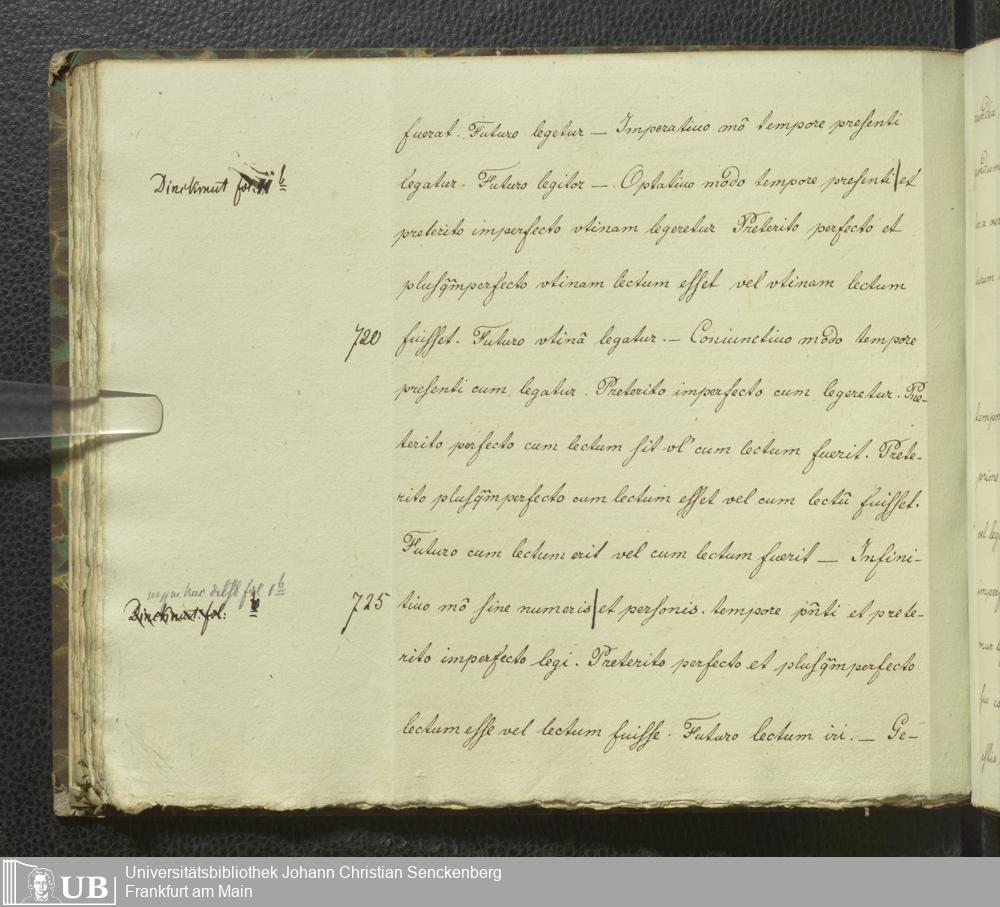 fuerat. Futuro legetur — Imperatiuo mõ tempore presenti
Dinckmut fol. b
legatur. Futuro legitor —. Optatiuo mõdo tempore presenti|et
preterito imperfecto vtinam legeretur Preterito perfecto et
plusq̃mperfecto vtinam lectum esset vel vtinam lectum
720 fuisset. Futuro vtinã legatur. — Coniunctiuo mõdo tempore
presenti cum legatur. Preterito imperfecto cum legeretur. Pre-
terito perfecto cum lectum sit vl' cum lectum fuerit. Prete-
rito plusq̃mperfecto cum lectum esset vel cum lectũ fuisset.
Futuro cum lectum erit vel cum lectum fuerit — Infini-
fol 1 b
Dinckmut. fol: b
725 tiuo mõ sine numeris|et personis. tempore pñti et prete-
rito imperfecto legi. Preterito perfecto et plusq̃mperfecto
lectum esse vel lectum fuisse. Futuro lectum iri. — Ge-
UB
Universitätsbibliothek Johann Christian Senckenberg
Frankfurt am Main